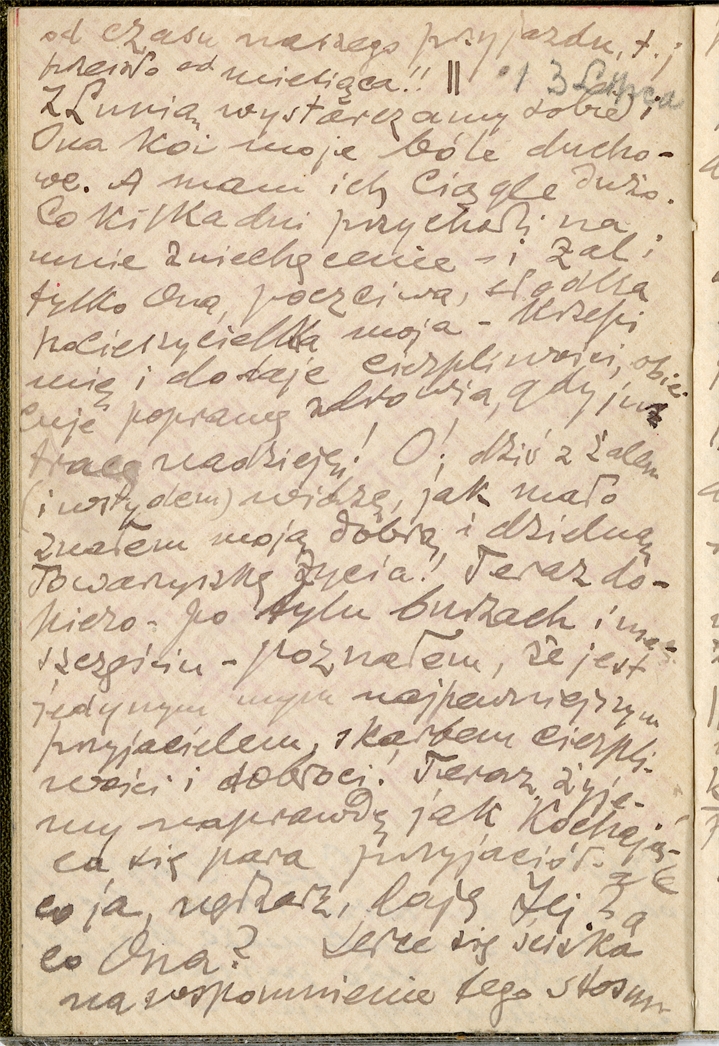 od czasu naszego przyjazdu, t. j
przeszło od miesiąca!! || 13 Lipca
Z Lunią wystarczamy sobie i
Ona koi moje bóle ducho-
we. A mam ich ciągle dużo.
Co kilka dni przychodzi na
mnie zniechęcenie - i żal i
tylko Ona, poczciwa, słodka
pocieszycielka moja - krzepi
mię i dodaje cierpliwości, obie
cuje poprawę zdrowia, gdy już
tracę nadzieję! O! dziś z żalem
(i wstydem) widzę, jak mało
znałem moją dobrą i dzielną
Towarzyszkę życia! Teraz do-
piero - po tylu burzach i nie-
szczęściu - poznałem, że jest
jedynym mym najpewniejszym
przyjacielem, skarbem cierpli-
wości i dobroci! Teraz żyje-
my naprawdę jak kochają-
ca się para przyjaciół. ale
co ja, nędzarz, daję Jej za
co Ona? Serce się ściska
na wspomnienie tego stosun